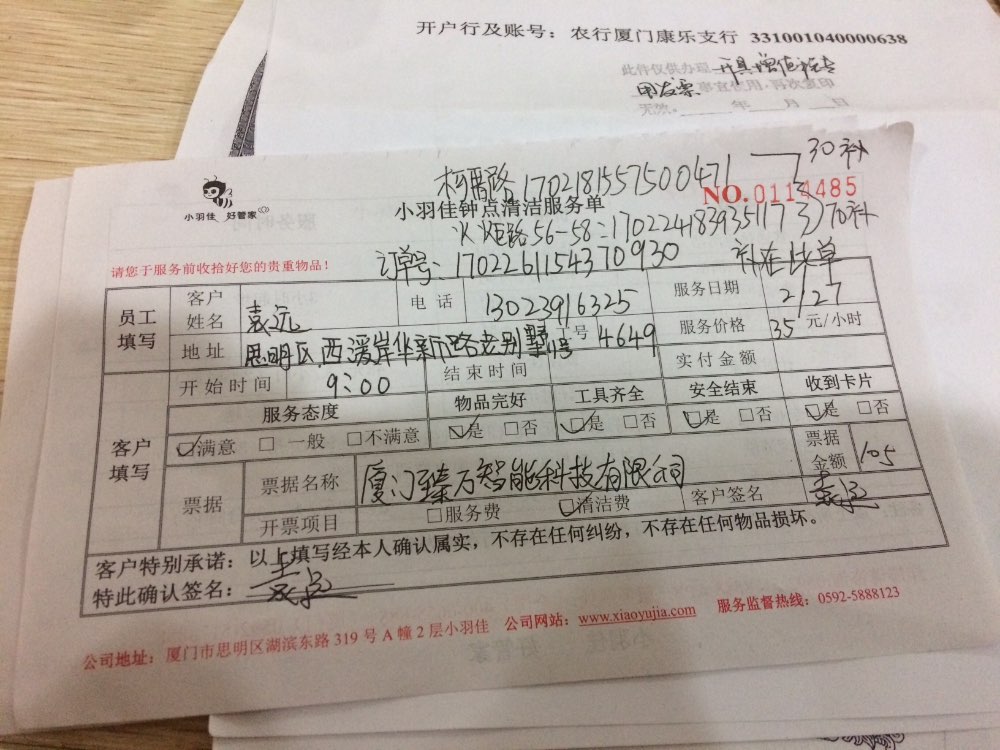 开户行及账号：农行厦门康乐支行 331001040000638
此件仅供办理 开具增值税专
用发票 事宜使用，再次复印
无效。 年 月 日
1702181557500471 30补
小羽佳 好管家
NO.0114485
小羽佳钟点清洁服务单
56-58：170224183935117 70补
订单号：170226115437 0930 补在此单
请您于服务前收拾好您的贵重物品！
员工填写 客户姓名 袁远 电话 13023916325 服务日期 2/27
地址 思明区西堤岸华新路老别墅 号 4649 服务价格 35 元/小时
开始时间 9：00 结束时间 实付金额
客户填写 服务态度 物品完好 工具齐全 安全结束 收到卡片
☑满意 □一般 □不满意 ☑是 □否 ☑是 □否 ☑是 □否 ☑是 □否
票据 票据名称 厦门臻万智能科技有限公司 票据金额 105
开票项目 □服务费 ☑清洁费 客户签名 袁远
客户特别承诺：以上填写经本人确认属实，不存在任何纠纷，不存在任何物品损坏。
特此确认签名： 袁远
公司地址：厦门市思明区湖滨东路 319 号 A 幢 2 层小羽佳 公司网站：www.xiaoyujia.com 服务监督热线：0592-5888123